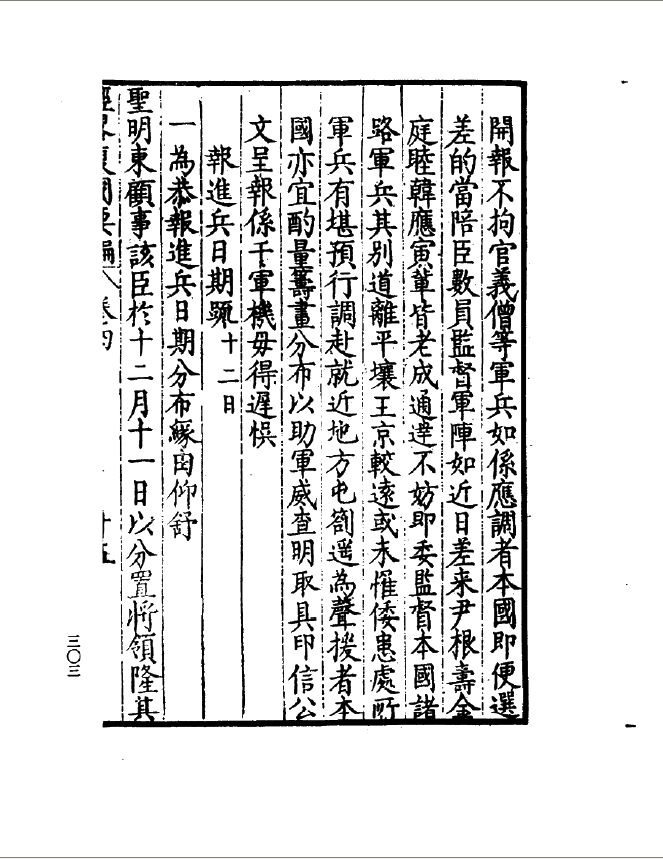 開報不拘官義僧等軍兵如係應調者本國即便選
差的當陪臣數員監督軍陣如近日差来尹根壽金
庭睦韓應寅軰皆老成通逹不妨即委監督本國諸
路軍兵其别道離平壤王京較遠或未罹倭患處所
軍兵有堪預行調赴就近地方屯劄遥為聲援者本
國亦宜酌量籌畫分布以助軍威查明取具印信公
文呈報係干軍機毋得遲悮
報進兵日期疏十二日
一為恭報進兵日期分布緣由仰舒
聖明東顧事該臣於十二月十一日以分置將領隆其
經畧復國要編 卷四 十五
三〇三